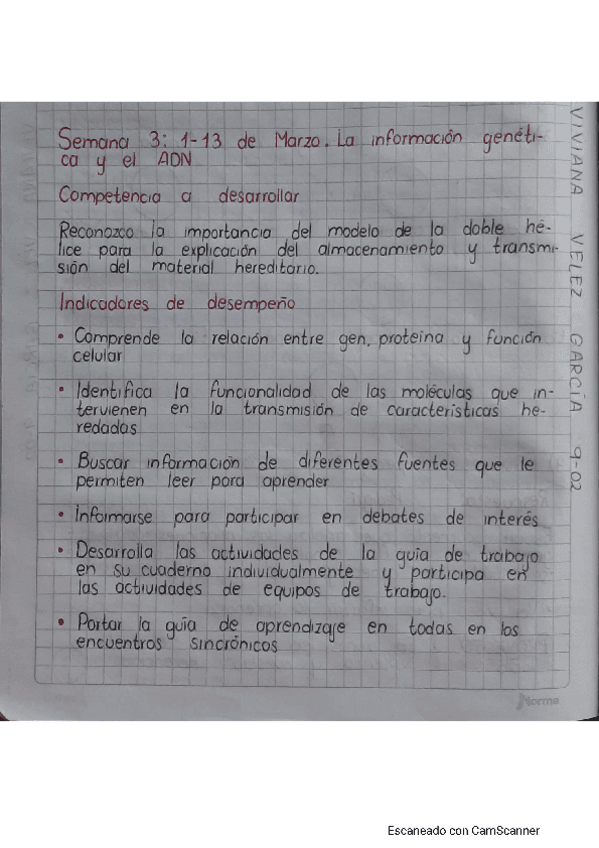 Semana 3: 1-13 de Marzo. La información genéti-
ca y el ADN
Competencia a desarrollar
Reconozco la importancia del modelo de la doble hé-
lice para la explicación del almacenamiento y transmi-
sión del material hereditario.
Indicadores de desempeño
• Comprende la relación entre gen, proteína y función
celular
• Identifica la funcionalidad de las moléculas que in-
tervienen en la transmisión de características he-
redadas
• Buscar información de diferentes fuentes que le
permiten leer para aprender
• Informarse para participar en debates de interés
• Desarrolla las actividades de la guía de trabajo
en su cuaderno individualmente y participa en
las actividades de equipos de trabajo.
• Portar la guía de aprendizaje en todas en los
encuentros sincrónicos
VIVIANA VELEZ GARCÍA 9-02
Norma
Escaneado con CamScanner